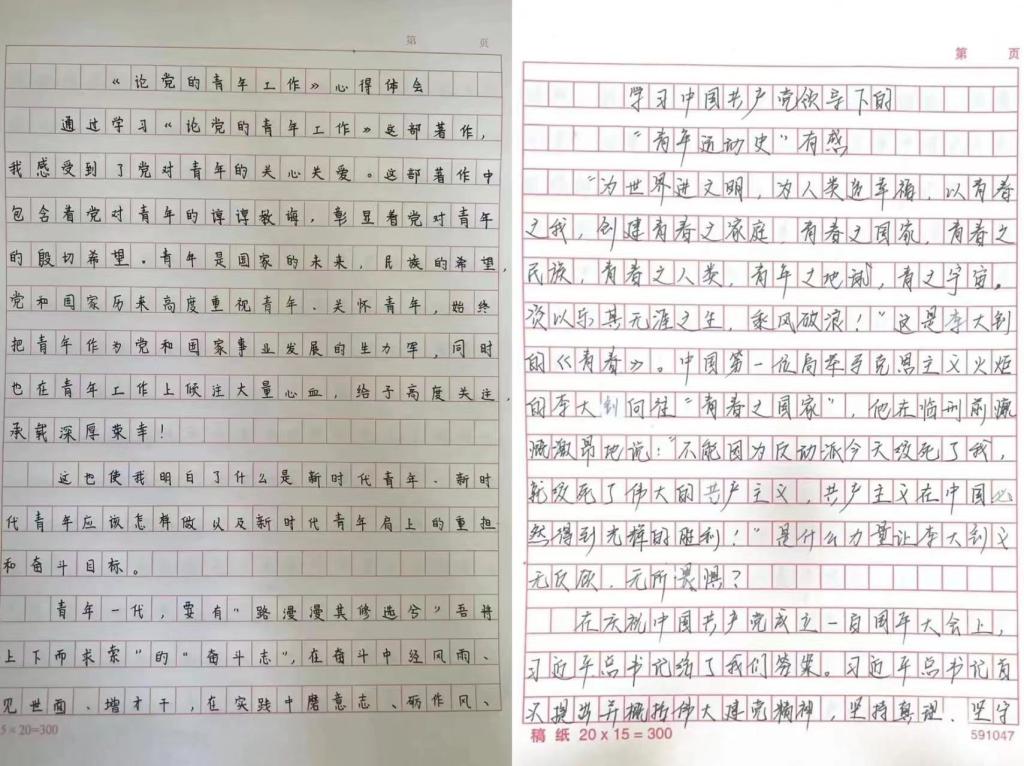 第 页
《论党的青年工作》心得体会
通过学习《论党的青年工作》这部著作，
我感受到了党对青年的关心关爱。这部著作中
包含着党对青年的谆谆教诲，彰显着党对青年
的殷切希望。青年是国家的未来，民族的希望，
党和国家历来高度重视青年、关怀青年，始终
把青年作为党和国家事业发展的生力军，同时
也在青年工作上倾注大量心血，给予高度关注，
承载深厚荣幸！
这也使我明白了什么是新时代青年、新时
代青年应该怎样做以及新时代青年肩上的重担
和奋斗目标。
青年一代，要有“路漫漫其修远兮”吾将
上下而求索”的“奋斗志”，在奋斗中经风雨、
见世面、增才干，在实践中磨意志、砺作风、
5×20=300
第 页
学习中国共产党领导下的
“青年运动史”有感
“为世界进文明，为人类造幸福，以青春
之我，创建青春之家庭，青春之国家，青春之
民族，青春之人类，青年之地球，青之宇宙。
资以乐其无涯之生，乘风破浪！”这是李大钊
的《《青春》。中国第一位高举马克思主义火炬
的李大钊向往“青春之国家”，他在临刑前慷
慨激昂地说：“不能因为反动派今天绞死了我，
就绞死了伟大的共产主义，共产主义在中国必
然得到光辉的胜利！”是什么力量让李大钊义
无反顾、无所畏惧？
在庆祝中国共产党成立一百周年大会上，
习近平总书记给了我们答案。习近平总书记首
次提出并概括伟大建党精神，坚持真理、坚守
稿纸 20 x 15 = 300
591047